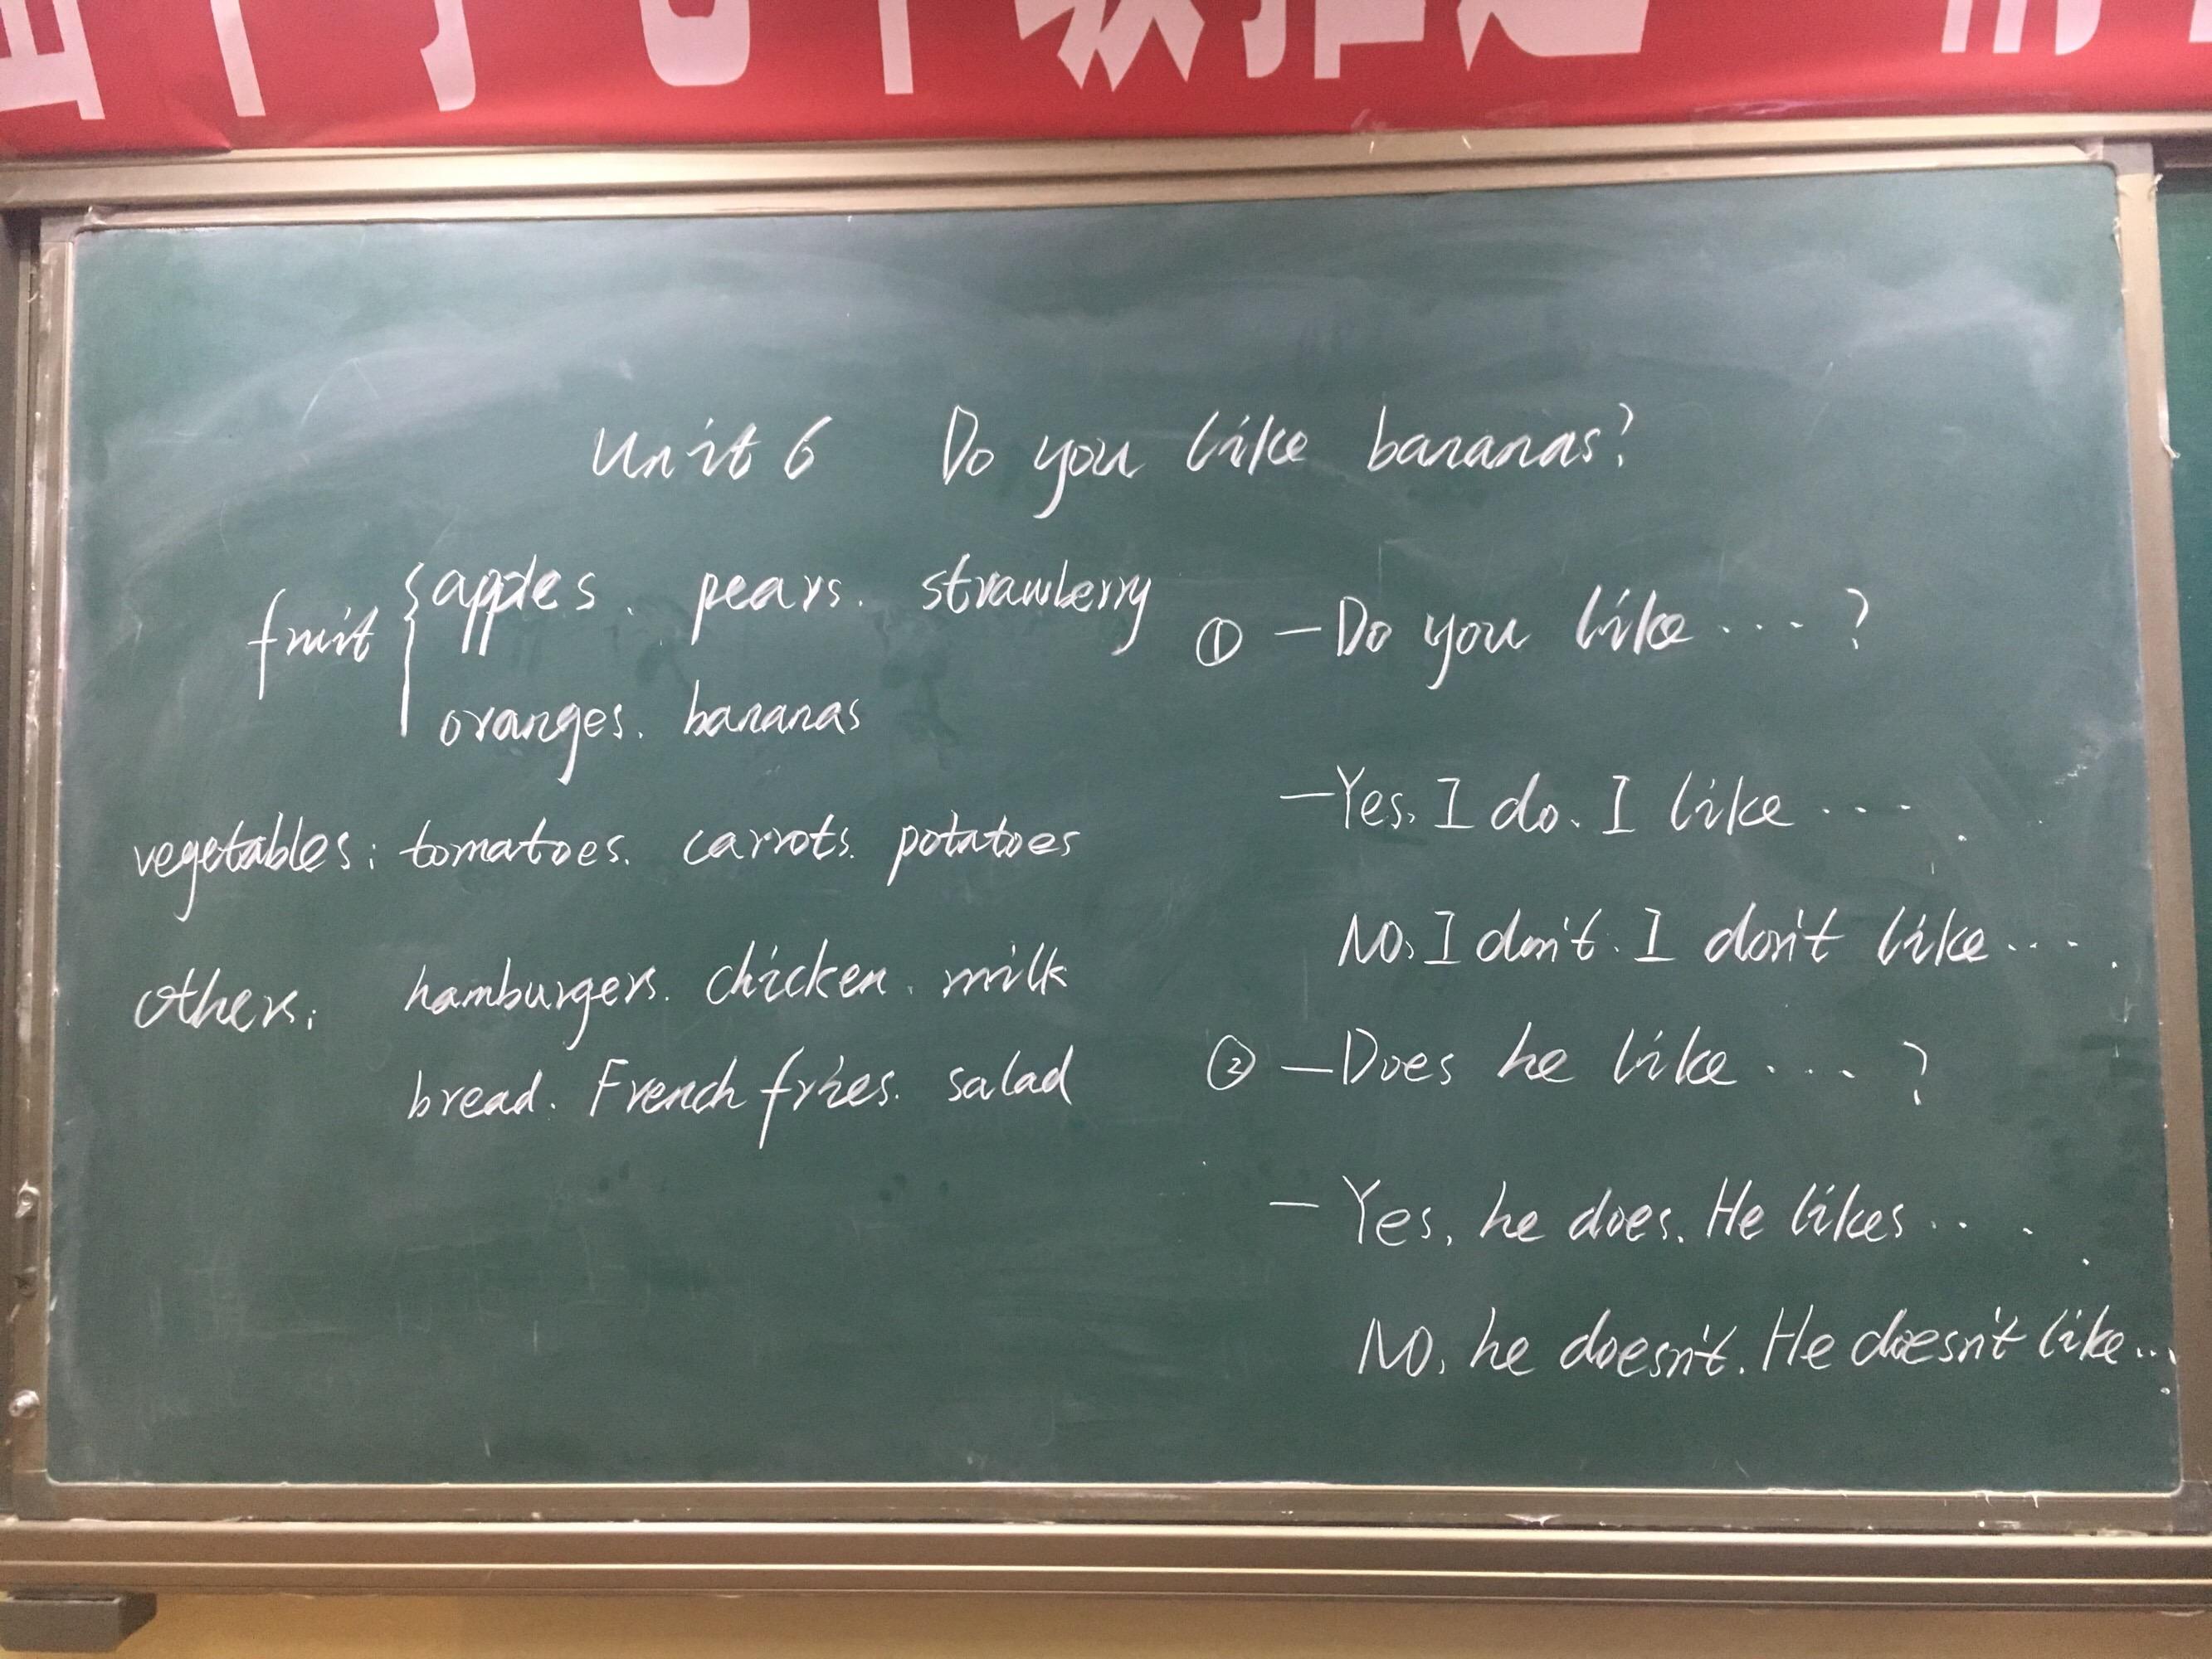 Unit 6 Do you like bananas?
fruit { apples. pears. strawberry
oranges. bananas
vegetables: tomatoes. carrots. potatoes
others: hamburgers. chicken. milk
bread. French fries. salad
① —Do you like ....?
—Yes, I do. I like ....
No, I don't. I don't like ....
② —Does he like ....?
— Yes, he does. He likes ....
No, he doesn't. He doesn't like...